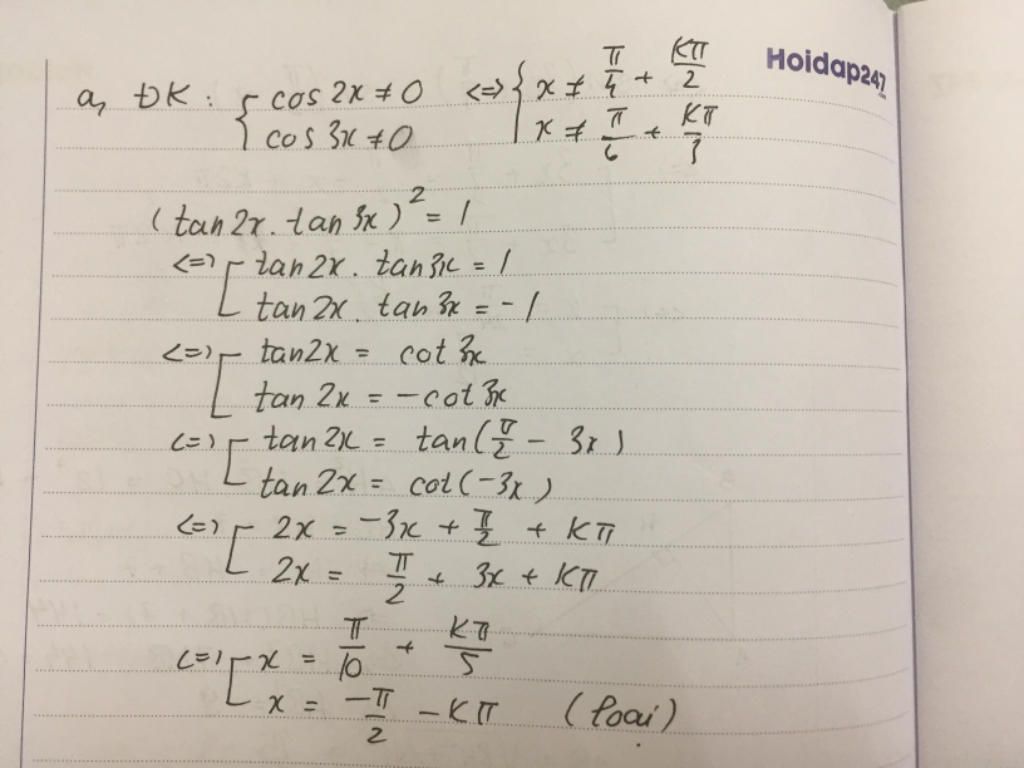 Hoidap247
a, ĐK: { cos 2x ≠ 0 <=> { x ≠ π/4 + kπ/2
cos 3x ≠ 0 x ≠ π/6 + kπ/3
(tan 2x . tan 3x)² = 1
<=> [ tan 2x . tan 3x = 1
tan 2x . tan 3x = -1
<=> [ tan 2x = cot 3x
tan 2x = -cot 3x
<=> [ tan 2x = tan(π/2 - 3x)
tan 2x = cot(-3x)
<=> [ 2x = -3x + π/2 + kπ
2x = π/2 + 3x + kπ
<=> [ x = π/10 + kπ/5
x = -π/2 - kπ (loại)